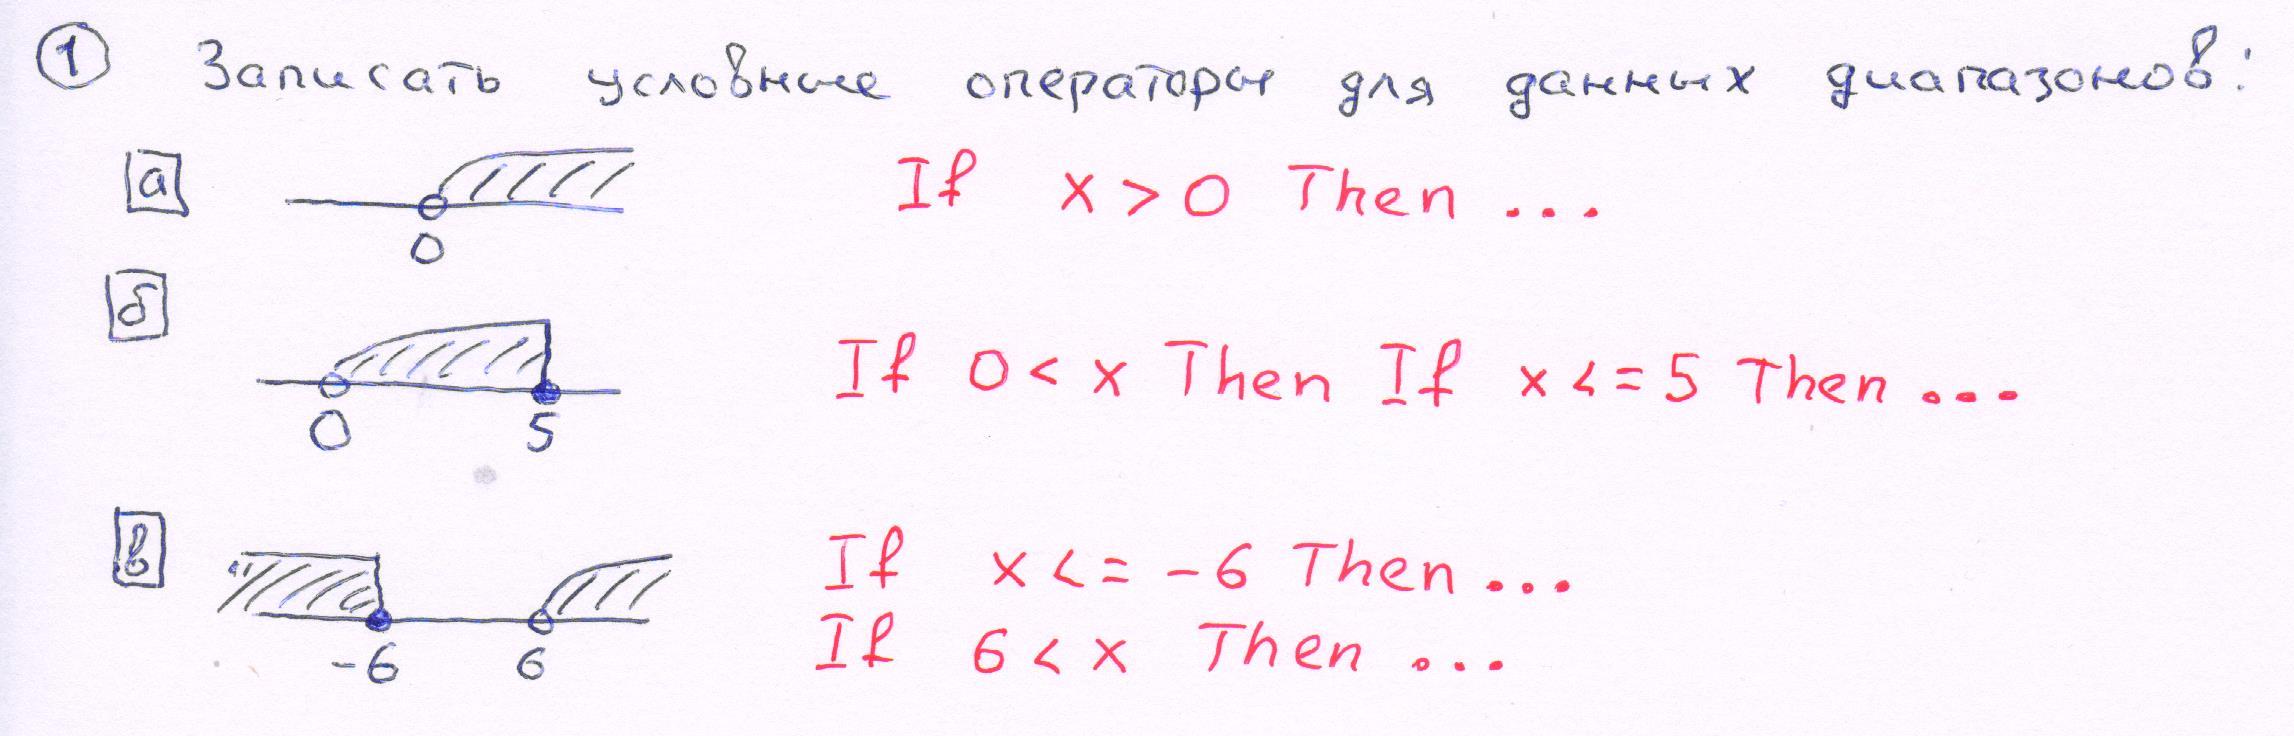 1 Записать условные операторы для данных диапазонов:
а If x > 0 Then ...
0
б If 0 < x Then If x <= 5 Then ...
0 5
в If x <= -6 Then ...
If 6 < x Then ...
-6 6